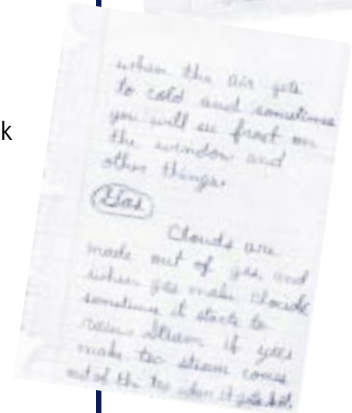 k
when the air gets
to cold and sometimes
you will see frost on
the window and
other things.
Gas
Clouds are
made out of gas and
when gas make clouds
sometimes it starts to
rain. Steam if you
make tea steam comes
out of the tea when it gets hot.